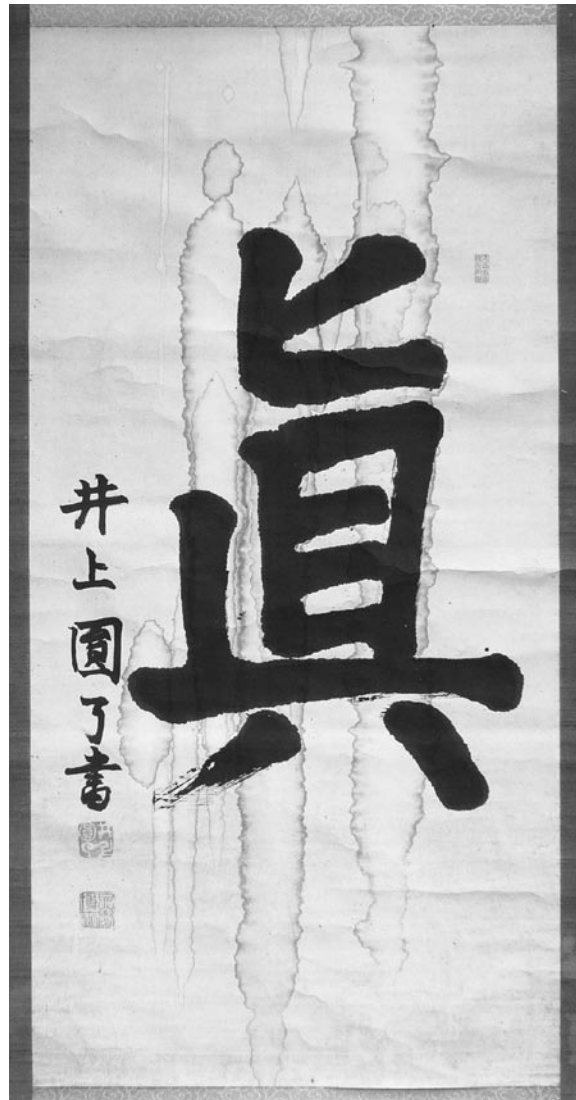 眞
井上圓了書